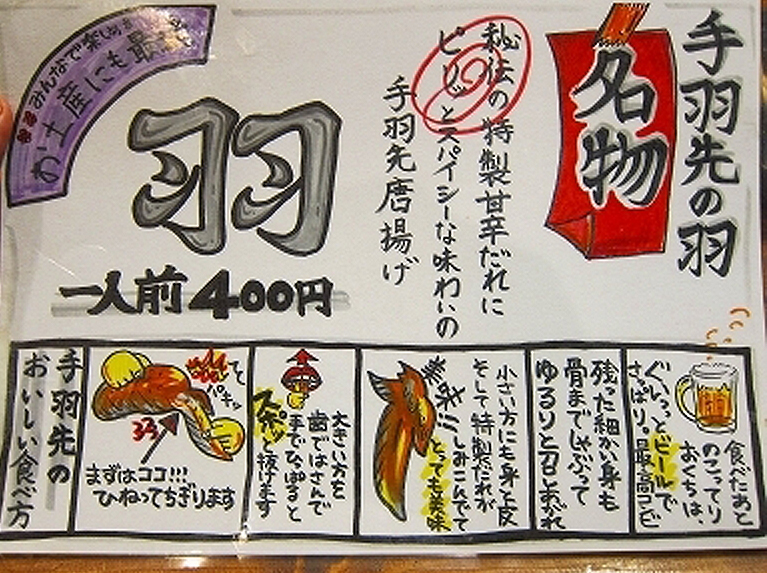 手羽先の羽
名物
秘伝の特製甘辛だれに
ピリッとスパイシーな味わいの
手羽先唐揚げ
羽
一人前400円
みんなで楽しめる
お土産にも最適
手羽先の
おいしい食べ方
まずはココ!!!
ひねってちぎります
大きい方を
歯ではさんで
手でひっぱると
スポッと抜けます
小さい方にも身と皮
そして特製だれが
しみこんでて
とっても美味
残った細かい身も
骨までしゃぶって
ゆるりと召しあがれ
食べたあと
のこってり
おくちは、
ぐいっとビールで
さっぱり。最高コンビ